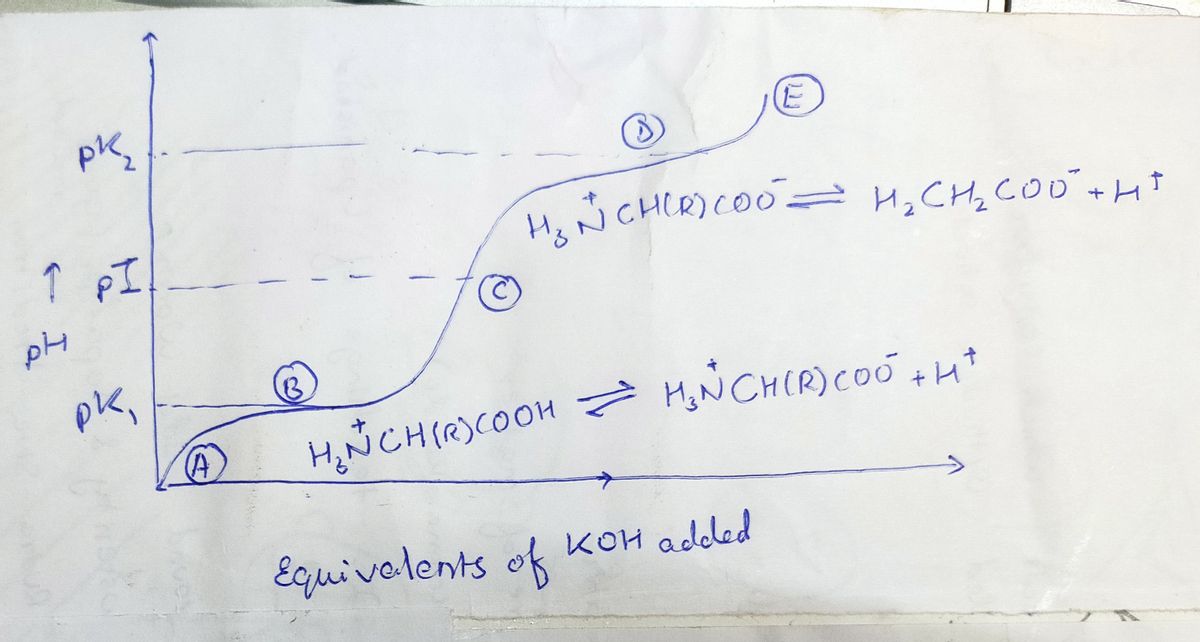 E
D
pK₂
H₃N⁺CH(R)COO⁻ ⇌ H₂CH₂COO⁻ + H⁺
↑ pI
C
pH
B
pK₁
H₃N⁺CH(R)COOH ⇌ H₃N⁺CH(R)COO⁻ + H⁺
A
Equivalents of KOH added